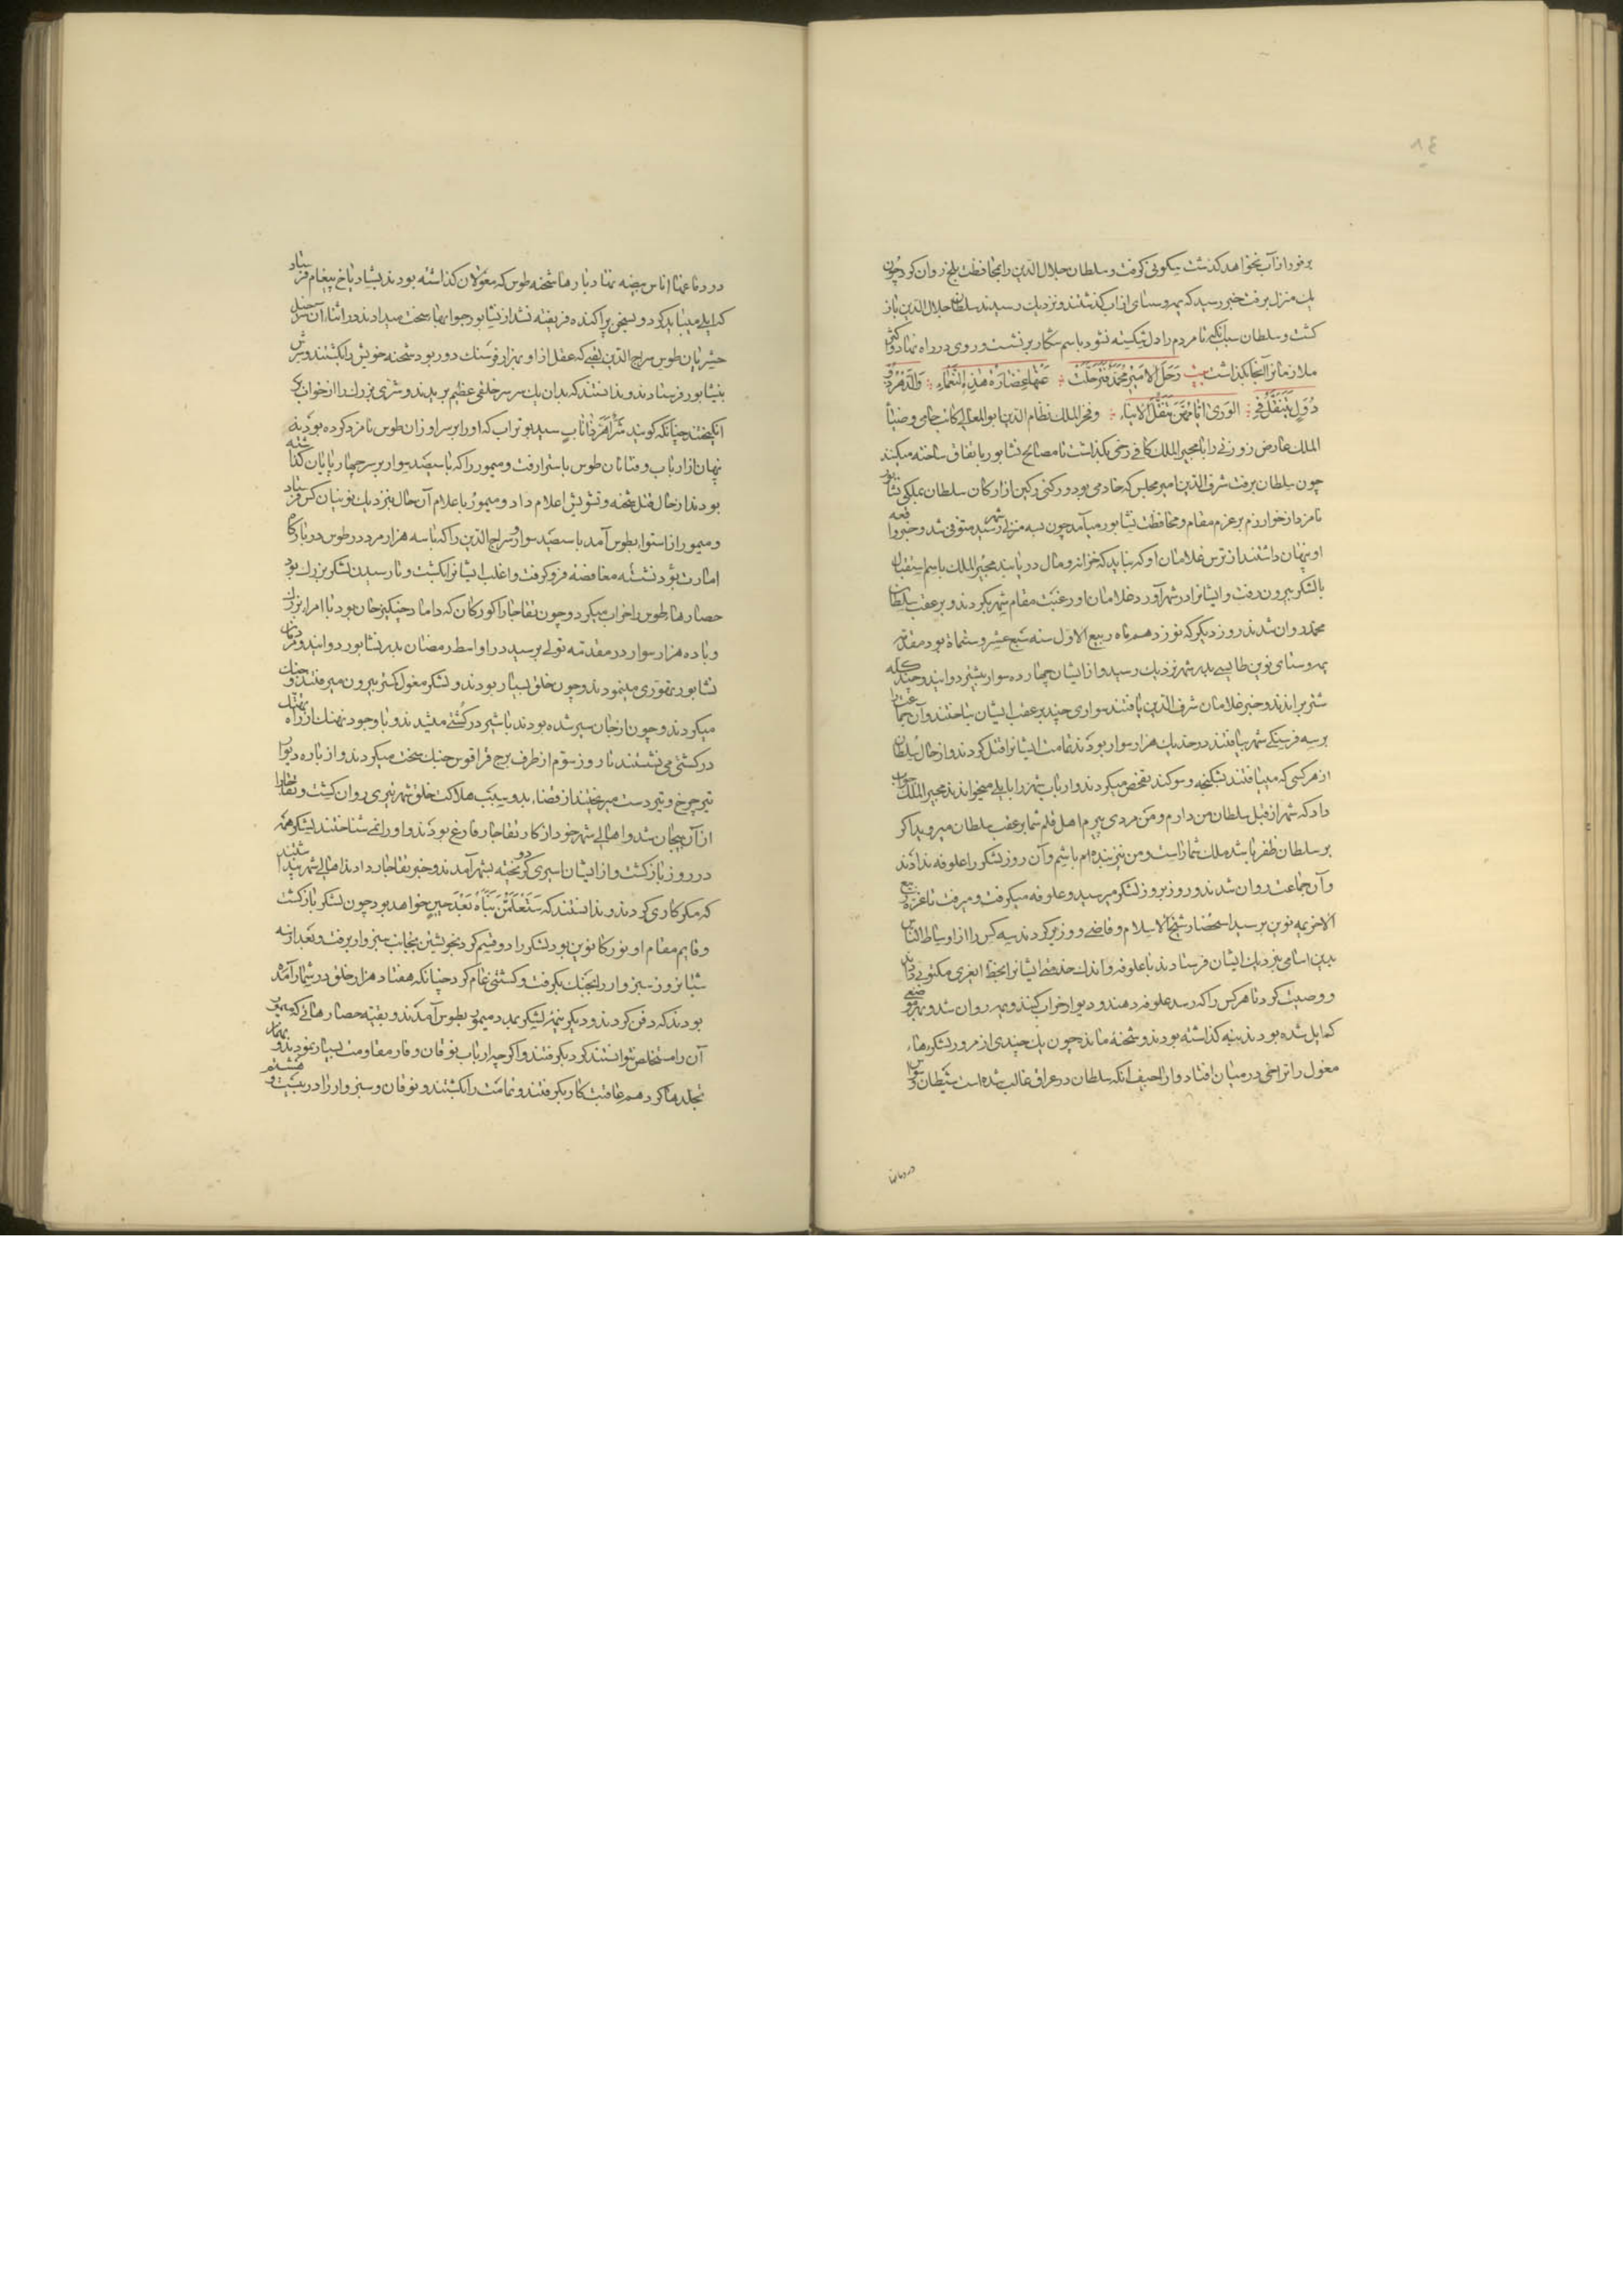 ٨٤
برفور از آب نخواهد گذشت سکونی گرفت و سلطان جلال الدین را بمحافظت بلخ روان کرد چون
یک منزل برفت خبر رسید که یمه و سنتای از اب گذشتند و نزدیک رسیدند سلطان جلال الدین باز
گشت و سلطان سبب آنکه تا مردم را دل شکسته نشود باسم شکار بر نشست و روی در راه نهاد و اکثر
ملازمانرا آنجا بگذاشت بیت رحل الامیر محمد فترحلت عنها غضارة هذه النعماء والدهر ذو
دول ینتقل فی الوری ایامهن تنقل الافیاء و فخر الملک نظام الدین ابو المعالی کاتب جامی و ضیا
الملک عارض زوزنی را با مجیر الملک کافی رخی بگذاشت تا مصالح نشابور باتفاق ساخته میکنند
چون سلطان برفت شرف الدین امیر مجلس که خادمی بود و رکنی رکین از ارکان سلطان بملکی نشابور
نامزد از خوارزم بر عزم مقام و محافظت نشابور میآمد چون بسه منزلی شهر رسید متوفی شد و خبر واقعه
او پنهان داشتند از ترس غلامان او که نباید که خزانه و مال در یابند مجیر الملک باسم استقبال
با لشکر بیرون رفت و ایشانرا در شهر آورد غلامان او رغبت مقام شهر نکردند و بر عقب سلطان
محمد روان شدند روز دیگر که نوزدهم ماه ربیع الاول سنه سبع عشر و ستمائة بود مقدمه
یمه و سنتای نوین طایسی بدر شهر نزدیک رسید و از ایشان چهارده سوار پیشتر دوانید و چند گله
شتر براندند و خبر غلامان شرف الدین یافتند سواری چند بر عقب ایشان بتاختند و آن جماعت را
بر سه فرسنگی شهر بیافتند در حد یک هزار سوار بودند تمامت ایشانرا قتل کردند و از حال سلطان
از هر کسی که مییافتند بشکنجه و سوگند تفحص میکردند و ارباب شهر را بایلی میخواندند مجیر الملک جواب
داد که شهر از قبل سلطان من دارم و من مردی پیرم اهل قلم شما بر عقب سلطان میروید اگر
بر سلطان ظفر باشد ملک شما راست و من نیز بنده ام باشیم و آن روز لشکر را علوفه ندادند
و آن جماعت روان شدند و روز بروز لشکر میرسید و علوفه میگرفت و میرفت تا غره ربیع
الاخر یمه نوین برسید استحضار شیخ الاسلام و قاضی و وزیر کردند سه کس را از اوساط الناس
بدین اسامی بنزدیک ایشان فرستادند تا علوفه و اندک خدمتی ایشانرا بخط ایغری مکتوبی داد
و وصیت کرد تا هر کس را که رسد علوفه دهند و دیوار خراب کنند و یمه روان شد و بهر موضعی
که ایل شده بودند بنه گذاشته بودند و شحنۀ مانده چون یک چندی از مرور لشکرهاء
مغول را تراخی در میان افتاد و اراجیف آنکه سلطان در عراق غالب شده است شیطان وسواس
در دماغها
در دماغها اناس بیضه نهاد بارها شحنه طوس که مغولان گذاشته بودند بشادیاخ پیغام فرستاد
که ایلی میباید کرد و بسخن پراکنده فریفته نشد از نشابور جوابهاء سخت میدادند در اثناء آن سرخیل
حشریان طوس سراج الدین لقبی که عقل از او بهزار فرسنگ دور بود شحنه خویش را بکشتند و سرش
بنیشابور فرستادند و ندانستند که بدان یک سر سر خلقی عظیم بریدند و شری بزرک را از خواب بر
انکیختند چنانکه کویند شر اهر ذا ناب سید بوتراب که او را بر سر اوزان طوس نامزد کرده بودند
پنهان از ارباب و فتانان طوس باستوا رفت و میمور را که با سیصد سوار بر سر چهارپایان گذاشته
بودند از حال قتل شحنه و تشویش اعلام داد و میمور باعلام آن حال بنزدیک نوینان کس فرستاد
و میمور از استوا بطوس آمد با سیصد سوار و سراج الدین را که با سه هزار مرد در طوس در بارگاه
امارت بود نشسته مغافصه فرو گرفت و اغلب ایشانرا بکشت و تا رسیدن لشکر بزرک بود
حصارهاء طوس را خراب میکرد و چون تغاجار گورکان که داماد چنکیز خان بود با امراء بزرک
و با ده هزار سوار در مقدمه تولی برسید در اواسط رمضان بدر نشابور دوانید و مردان
نشابور تهوری مینمودند و چون خلق بسیار بودند و لشکر مغول کمتر بیرون میرفتند و جنک
میکردند و چون از جان سیر شده بودند با شیر در کشتی میشدند و با وجود نهنک از راه تهتک
در کشتی می نشستند تا روز سوم از طرف برج قراقوس جنک سخت میکردند و از باره و دیوار
تیر چرخ و تیر دست میریختند از قضاء بد و سبب هلاکت خلق شهر تیری روان گشت و تغاجار
از آن بیجان شد و اهالی شهر خود از کار تغاجار فارغ بودند و او را نمی شناختند لشکر هم
در روز باز گشت و از ایشان اسیری دو گریخته بشهر آمدند و خبر تغاجار دادند اهالی شهر پنداشتند
که مگر کاری کردند و ندانستند که ستعلمن نباه بعد حین خواهد بود چون لشکر باز گشت
و قایم مقام او نورکا نوین بود لشکر را دو قسم کرد بخویشتن بجانب سبزوار برفت و بعد از سه
شبانروز سبزوار را بجنک بگرفت و کشتی عام کرد چنانکه هفتاد هزار خلق در شمار آمده
بودند که دفن کردند و دیگر نیمه لشکر بمدد میمور بطوس آمدند و بقیه حصارهائی که میمور
آن را مستخلص نتوانست کرد بگرفتند و اگر چه ارباب نوقان و قار مقاومت بسیار نمودند و
تجلدها کرد هم عاقبت کار بگرفتند و تمامت را بکشتند و نوقان و سبزوار را در بیست و هشتم